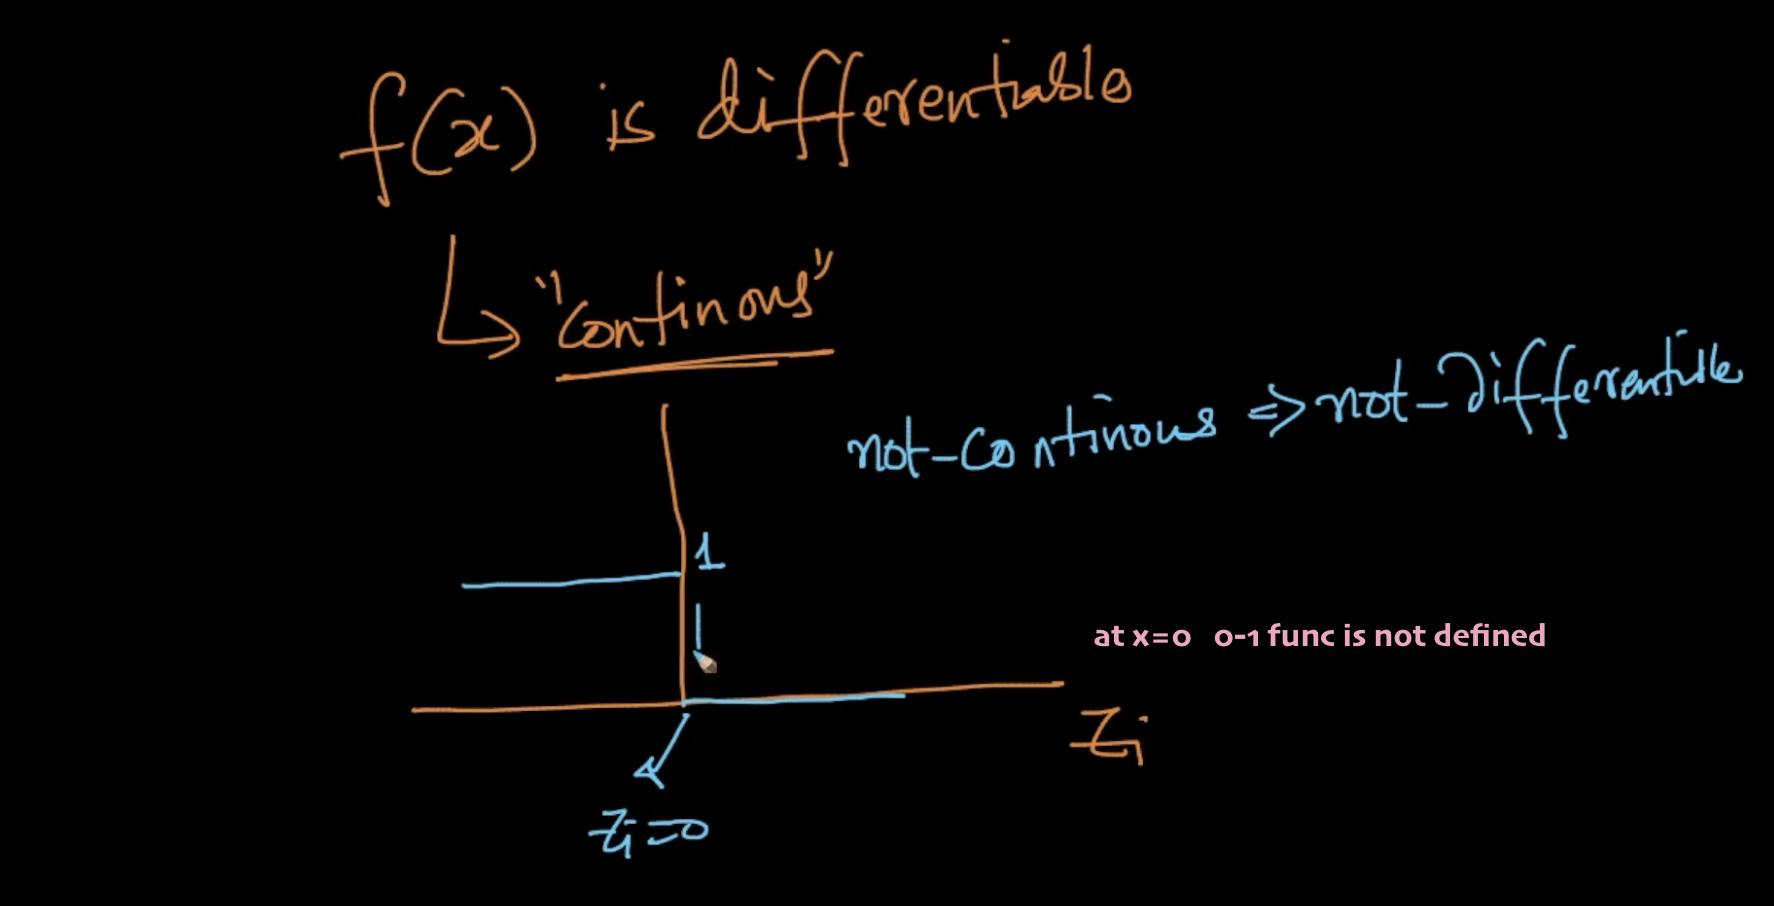 f(x) is differentiable
↳ "continous"
not-continous ⇒ not-differentiable
1
at x=0 0-1 func is not defined
Zi
Zi=0